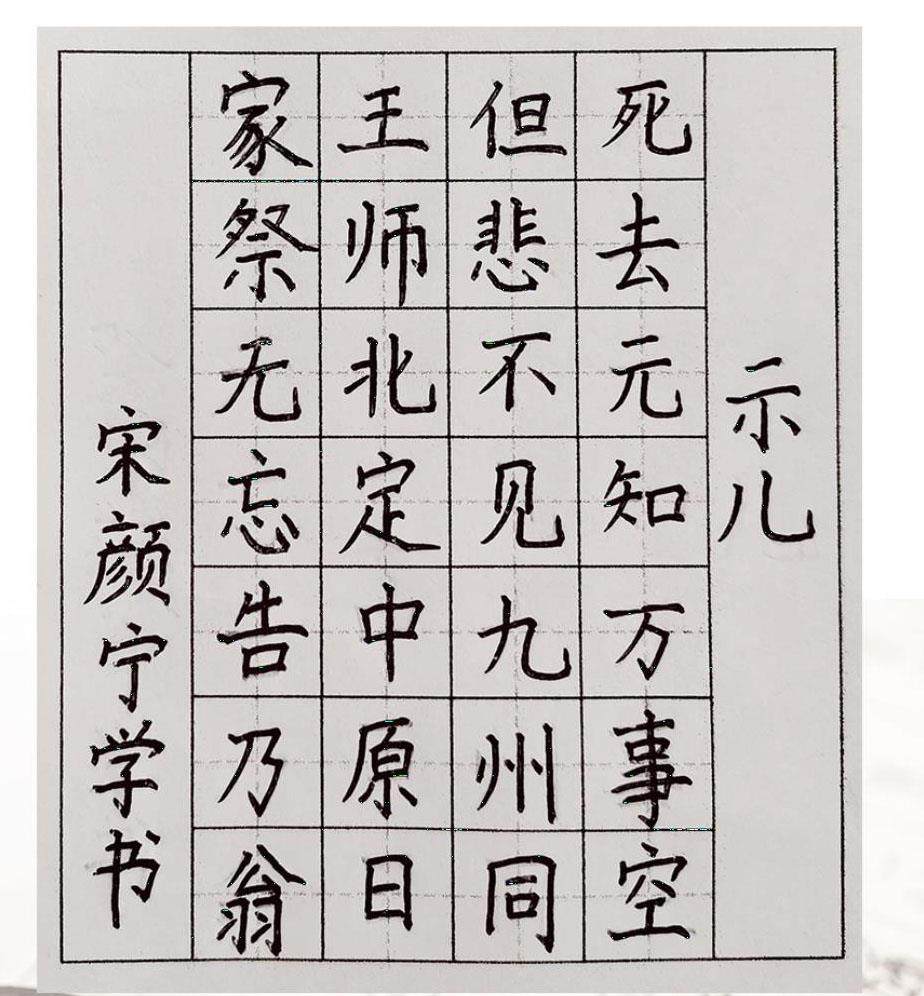 示儿
死去元知万事空
但悲不见九州同
王师北定中原日
家祭无忘告乃翁
宋颜宁学书